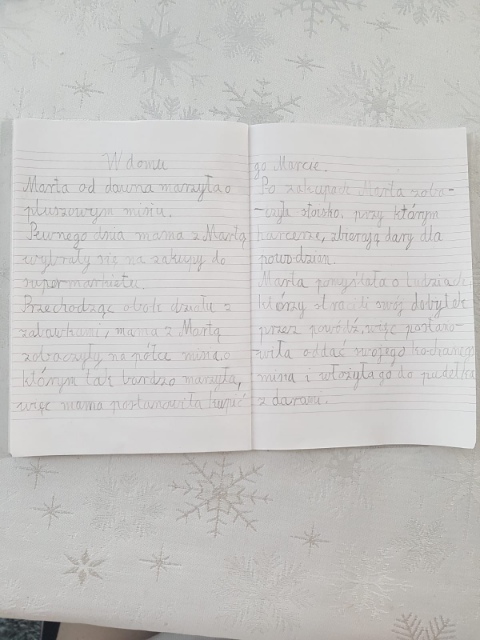 W domu
Marta od dawna marzyła o
pluszowym misiu.
Pewnego dnia mama z Martą
wybrały się na zakupy do
supermarketu.
Przechodząc obok działu z
zabawkami, mama z Martą
zobaczyły na półce misia o
którym tak bardzo marzyła,
więc mama postanowiła kupić
go Marcie.
Po zakupach Marta zoba-
-czyła stoisko, przy którym
harcerze, zbierają dary dla
powodzian.
Marta pomyślała o ludziach
którzy stracili swój dobytek
przez powódź, więc postano-
wiła oddać swojego kochanego
misia i włożyła go do pudełka
z darami.